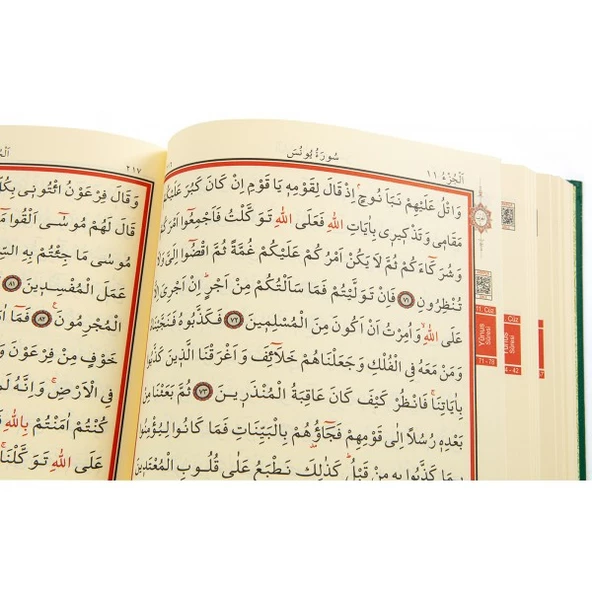 سُورَةُ يُونُسَ
اَلْجُزْءُ ١١
وَاتْلُ عَلَيْهِمْ نَبَاَ نُوحٍۢ اِذْ قَالَ لِقَوْمِهٖ يَا قَوْمِ اِنْ كَانَ كَبُرَ عَلَيْكُمْ
مَقَامٖي وَتَذْكٖيرٖي بِاٰيَاتِ اللّٰهِ فَعَلَى اللّٰهِ تَوَكَّلْتُ فَاَجْمِعُٓوا
وَشُرَكَٓاءَكُمْ ثُمَّ لَا يَكُنْ اَمْرُكُمْ عَلَيْكُمْ غُمَّةً ثُمَّ اقْضُٓوا اِلَيَّ وَلَا
تُنْظِرُونِ ﴿٧١﴾ فَاِنْ تَوَلَّيْتُمْ فَمَا سَاَلْتُكُمْ مِنْ اَجْرٍۜ اِنْ اَجْرِيَ اِلَّا
عَلَى اللّٰهِۙ وَاُمِرْتُ اَنْ اَكُونَ مِنَ الْمُسْلِمٖينَ ﴿٧٢﴾ فَكَذَّبُوهُ فَنَجَّيْنَاهُ
وَمَنْ مَعَهُ فِي الْفُلْكِ وَجَعَلْنَاهُمْ خَلَٓائِفَ وَاَغْرَقْنَا الَّذٖينَ كَذَّبُوا
بِاٰيَاتِنَاۚ فَانْظُرْ كَيْفَ كَانَ عَاقِبَةُ الْمُنْذَرٖينَ ﴿٧٣﴾ ثُمَّ بَعَثْنَا مِنْ
بَعْدِهٖ رُسُلًا اِلٰى قَوْمِهِمْ فَجَٓاؤُ۫هُمْ بِالْبَيِّنَاتِ فَمَا كَانُوا لِيُؤْمِنُوا
بِمَا كَذَّبُوا بِهٖ مِنْ قَبْلُۜ كَذٰلِكَ نَطْبَعُ عَلٰى قُلُوبِ الْمُعْتَدٖينَ
11. Cüz
Yûnus
Sûresi
71 - 78
Cüz
Yûnus
Sûresi
٢١٧
وَقَالَ فِرْعَوْنُ ائْتُونٖي بِكُلِّ
قَالَ لَهُمْ مُوسٰٓى اَلْقُوا
مُوسٰى مَا جِئْتُمْ بِهِ
عَمَلَ الْمُفْسِدٖينَ ﴿٨١﴾
الْمُجْرِمُونَ ﴿٨٢﴾ فَمَٓا
خَوْفٍ مِنْ فِرْعَوْنَ
فِي الْاَرْضِۚ وَاِنَّهُ
كُنْتُمْ اٰمَنْتُمْ بِاللّٰهِ
عَلَى اللّٰهِ تَوَكَّلْنَاۚ